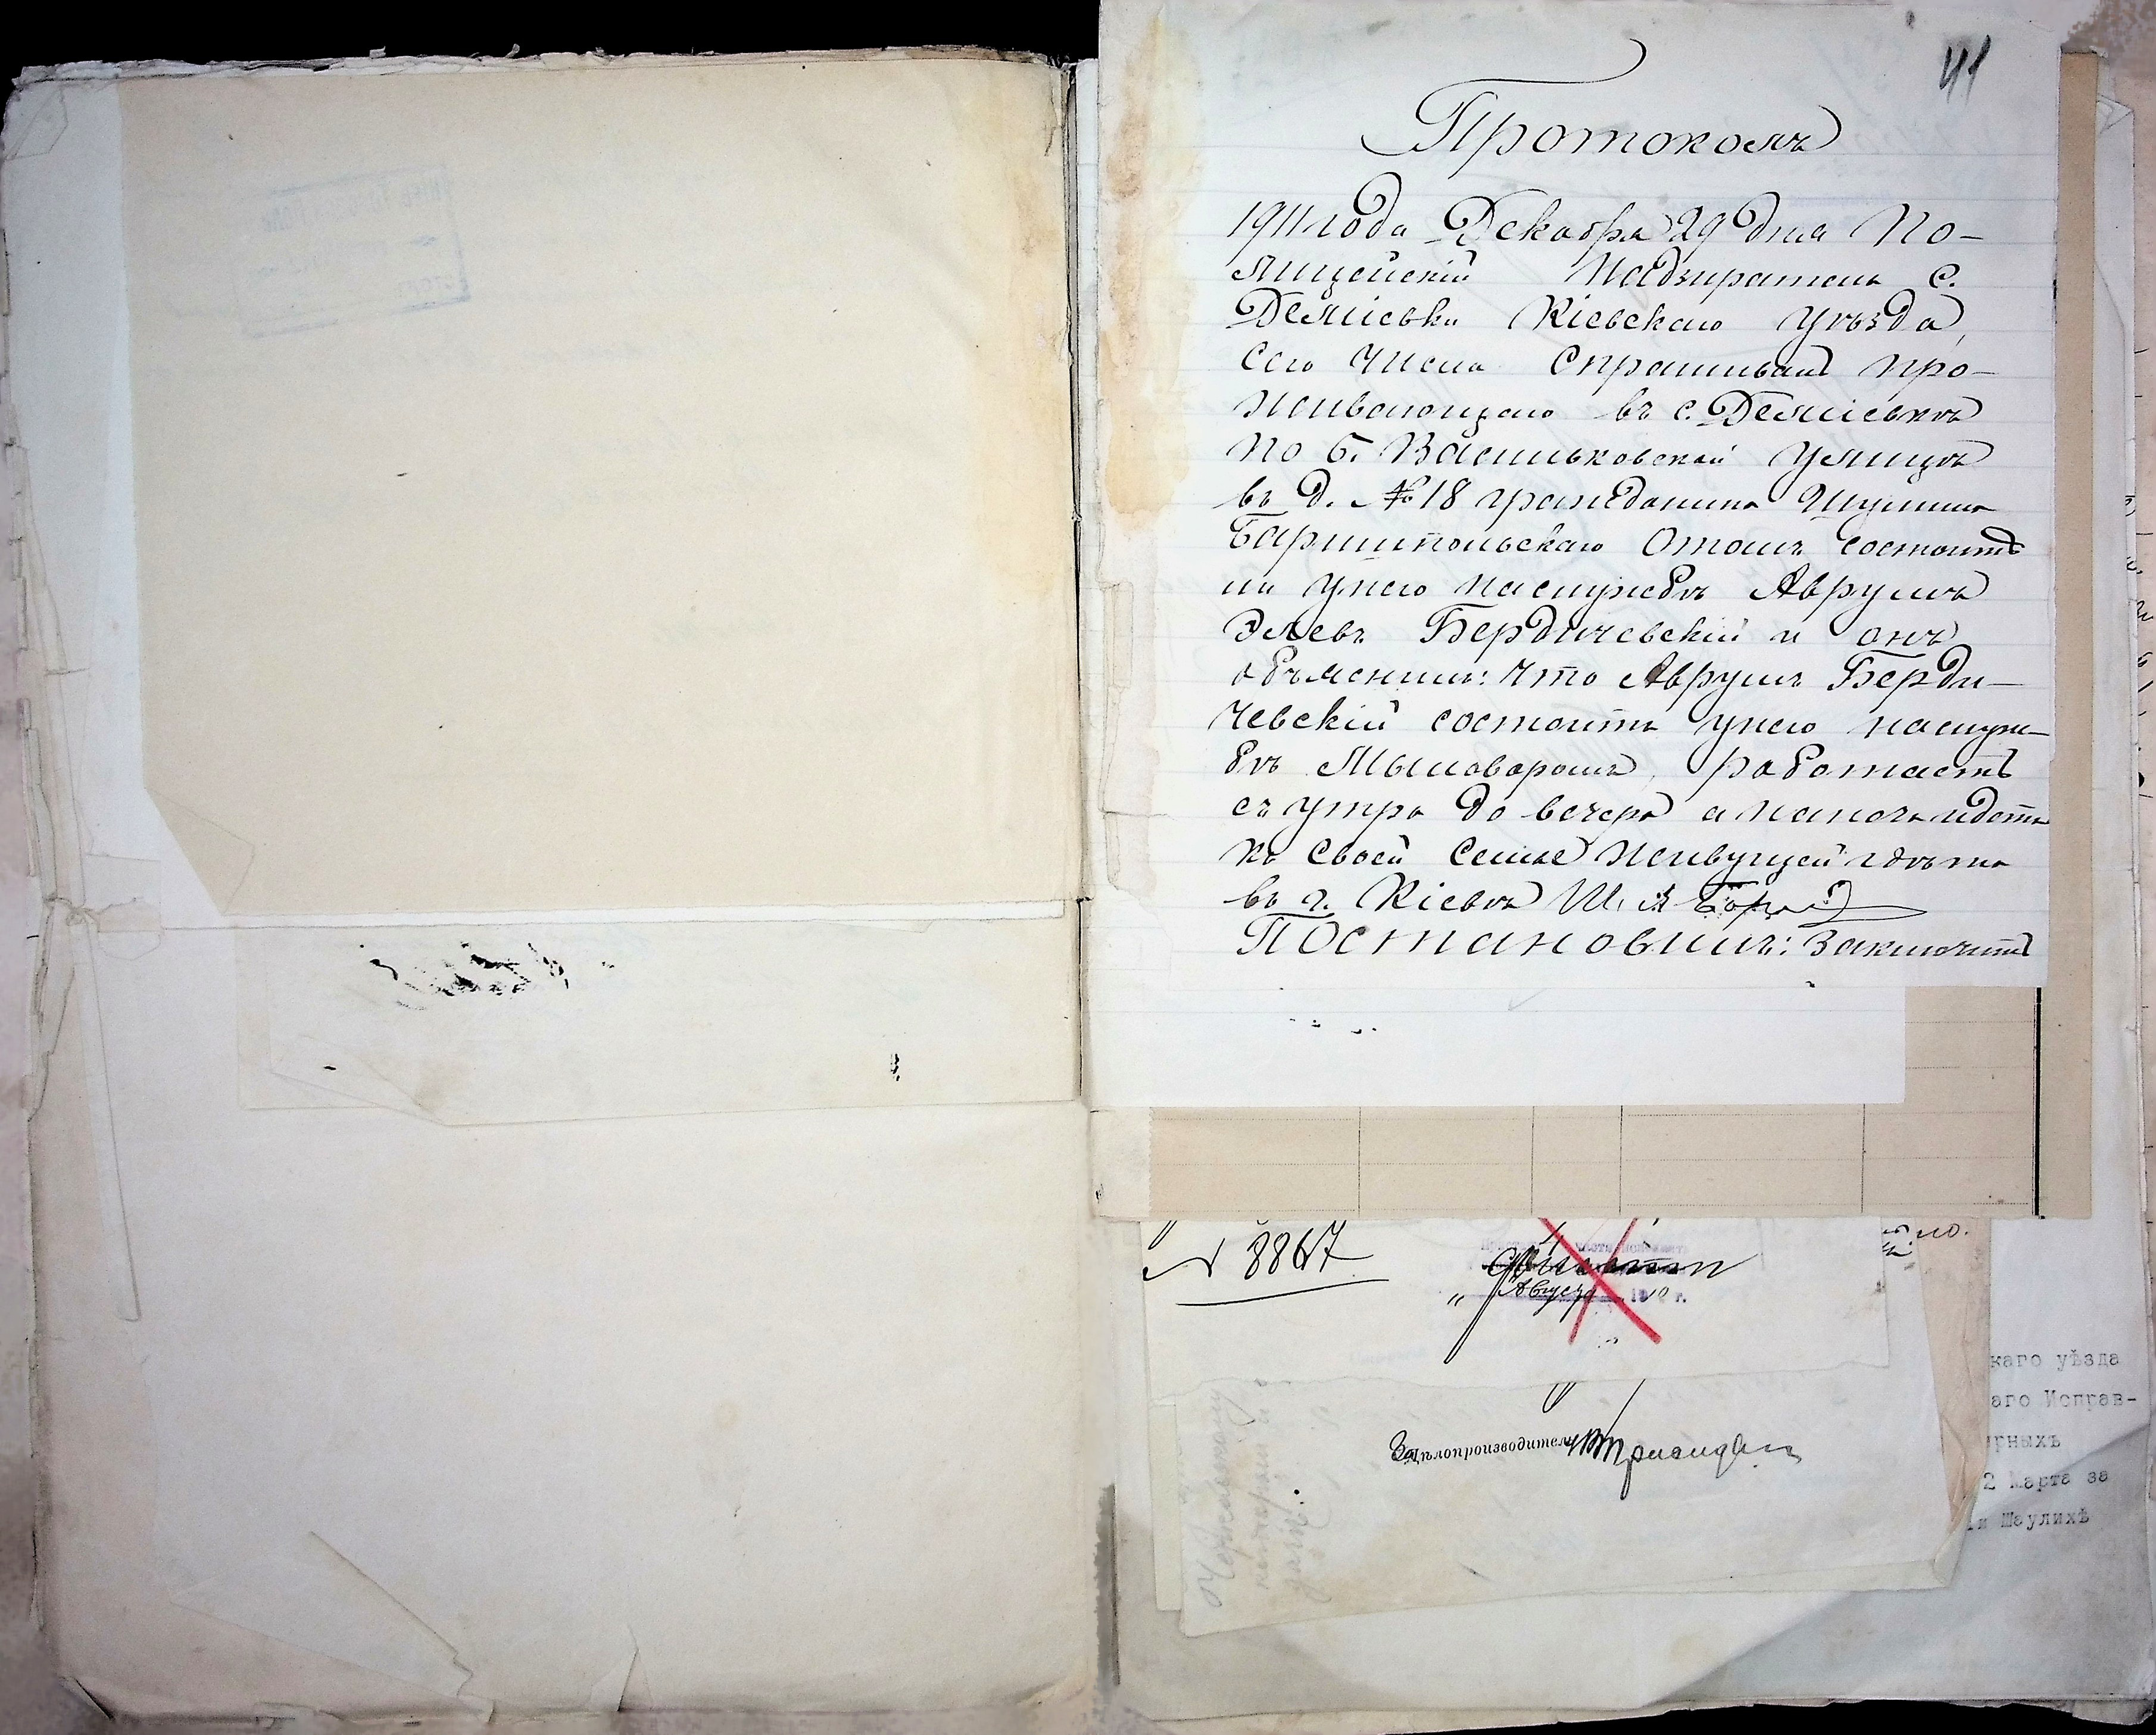 41
Протоколъ
1911 года Декабря 29 дня По-
лицейскій Надзиратель с.
Деміевки Кіевскаго уѣзда,
сего числа спрашивалъ про-
живающаго въ с. Деміевкѣ
по Б. Васильковской улицѣ
въ д. № 18 гражданина
Барышпольскаго о томъ состоитъ
ли у него на службѣ Аврумъ
Элевъ Бердичевскій и онъ
объяснилъ: что Аврумъ Берди-
чевскій состоитъ у него на служ-
бѣ Мыловаромъ, работаетъ
съ утра до вечера а на ночь идетъ
къ своей семье живущей гдѣ то
въ г. Кіевѣ
Постановилъ: Заключить
N 8867
Августа
За Дѣлопроизводитель
каго уѣзда
аго Исправ-
рныхъ
2 Марта за
и Шаулихѣ